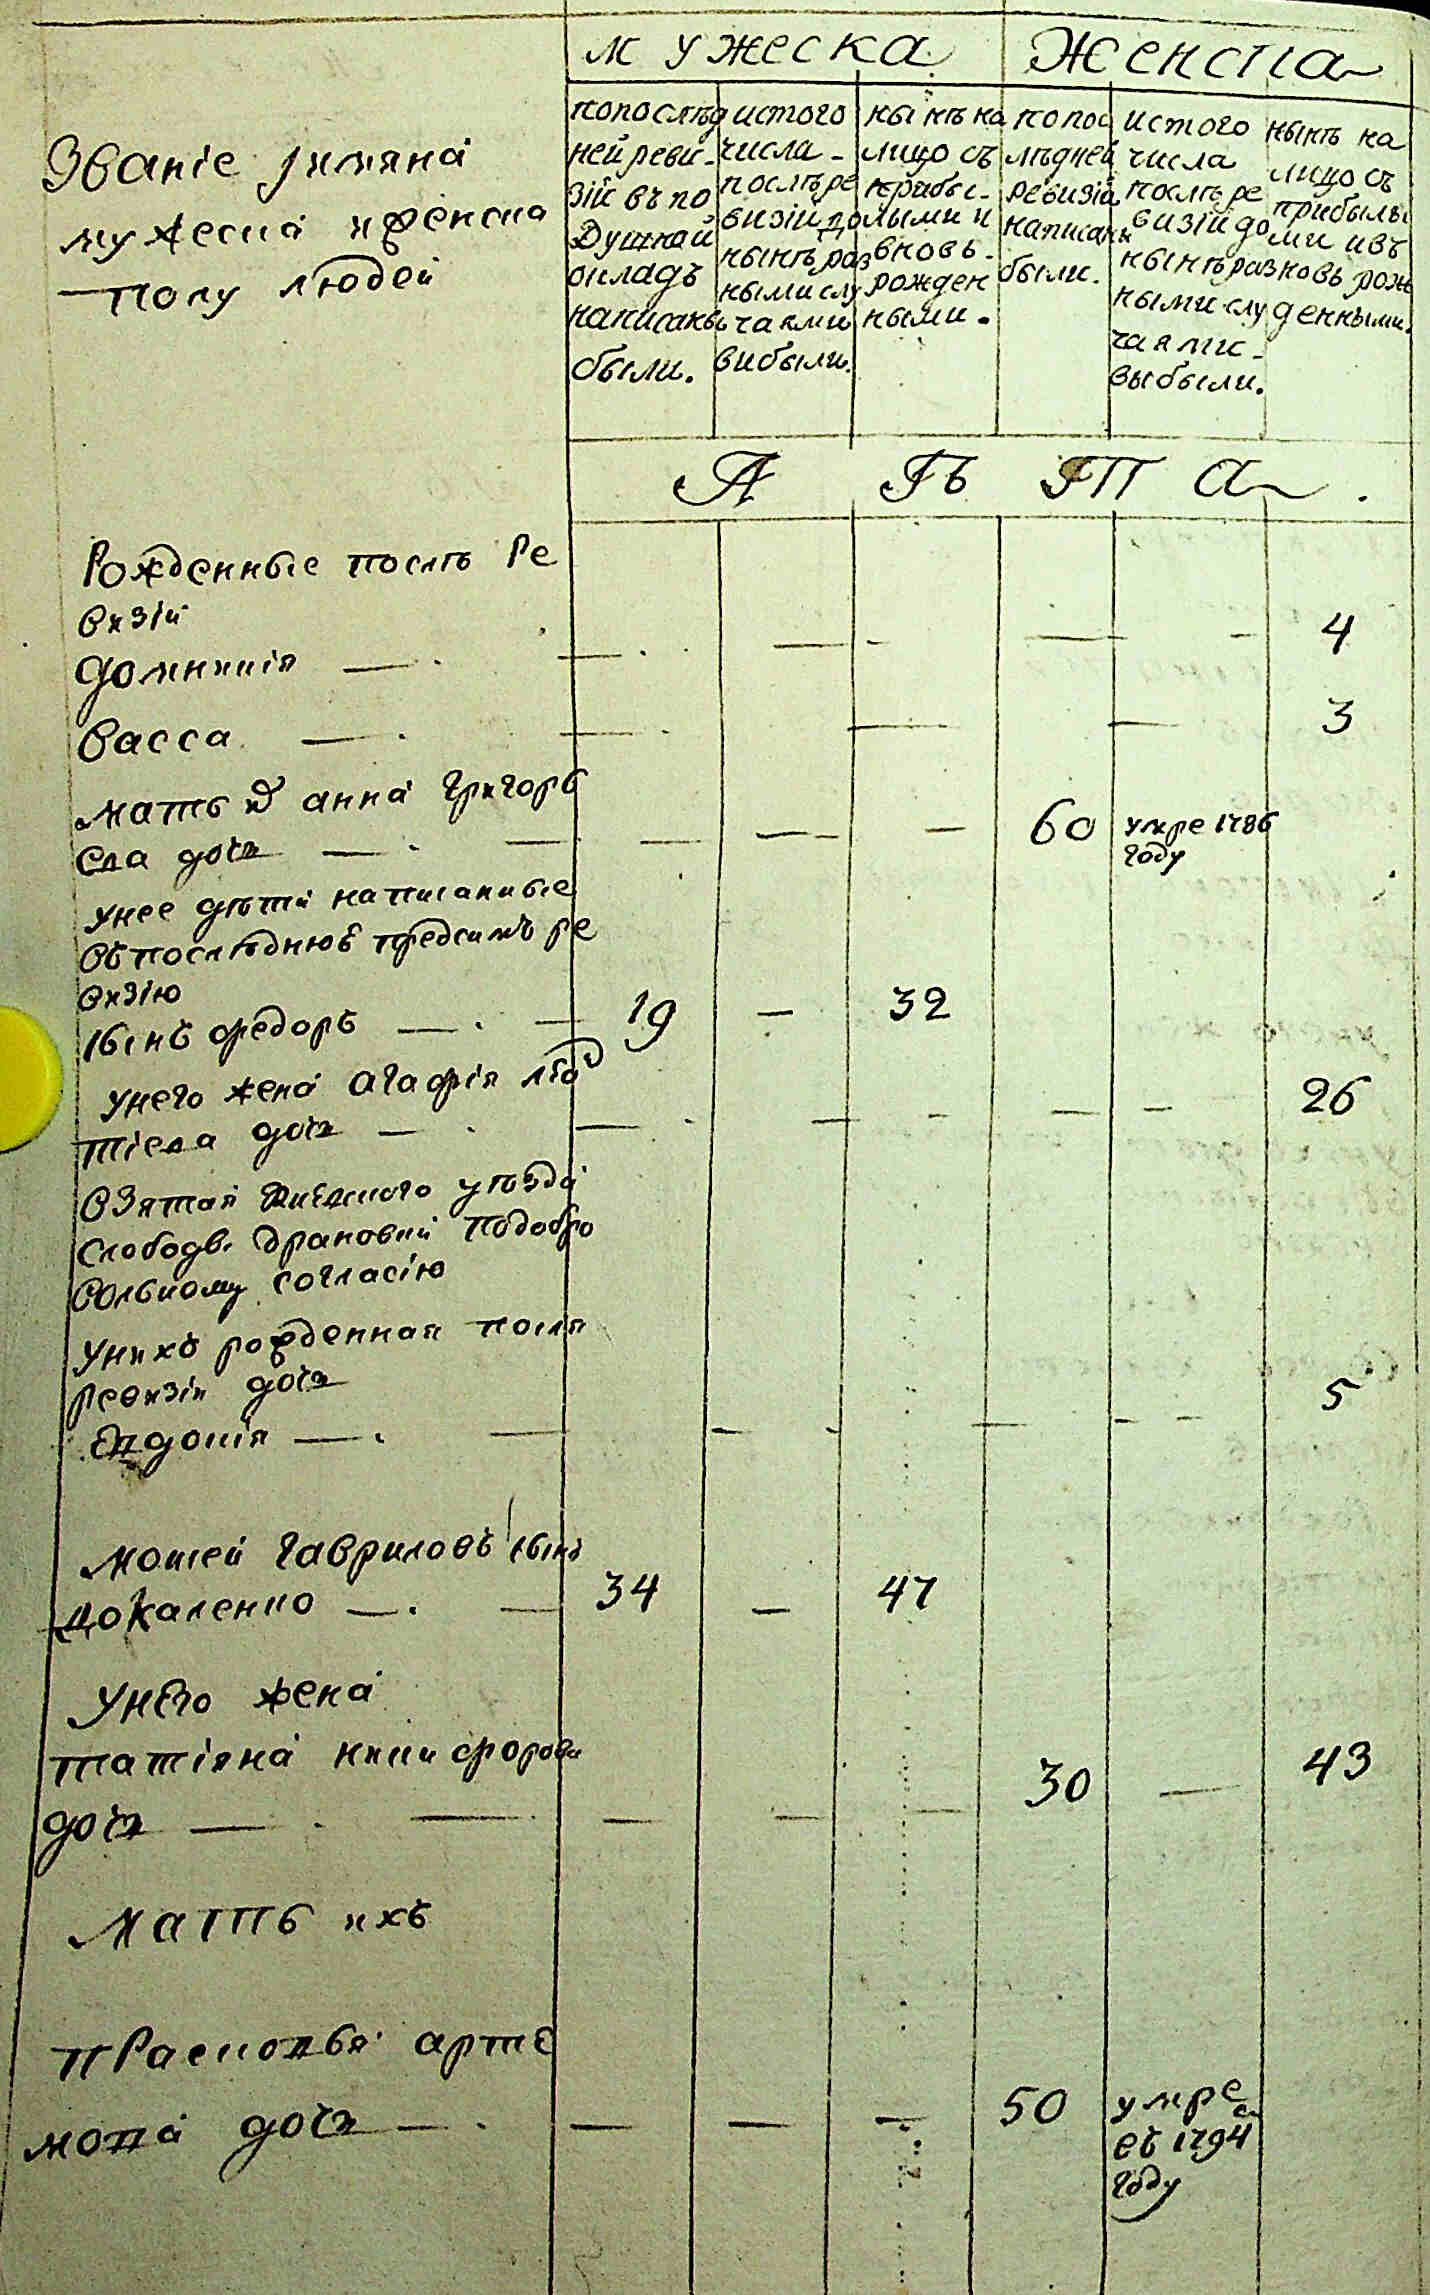 мужеска женска
Званіе ямяна
мужеска иженска
полу людей
попослѣд
ней реви-
зіи въ по
душной
окладъ
написаны
были.
истого
числа -
послѣре
визіи до
нынѣ раз
ными слу
чаями
вибыли.
нынѣ на
лицо съ
прибы-
лыми и
вновь-
рожден
ными.
попос
лѣдней
ревизіи
написаны
были.
истого
числа
послѣ ре
визіи до
нынѣ раз
ными слу
чаями-
выбыли.
нынѣ на
лицо съ
прибылы
ми ивъ
новь рож
денными.
Л ѣ т а .
Рожденные послѣ Ре
визіи
домникія — . 4
васса — . 3
мать ихъ анна григорь
ева дочь — . 60 умре 1786
году
унее дѣти написанные
въпослѣднюю предсимъ ре
визію
сынъ федоръ — . 19 - 32
унего жена агафія
тіева дочь — . 26
взятая Кіевского уѣзда
слободы драновки подобро
вольному согласію
унихъ рожденная посля
ревизіи дочь
Евдокія — . 5
мокіей гавриловъ сынъ
цокаленко — . 34 - 47
унего жена
татіяна никифорова
дочь — . 30 — 43
мать ихъ
Прасковья арте
мова дочь — . 50 умре
въ 1794
году